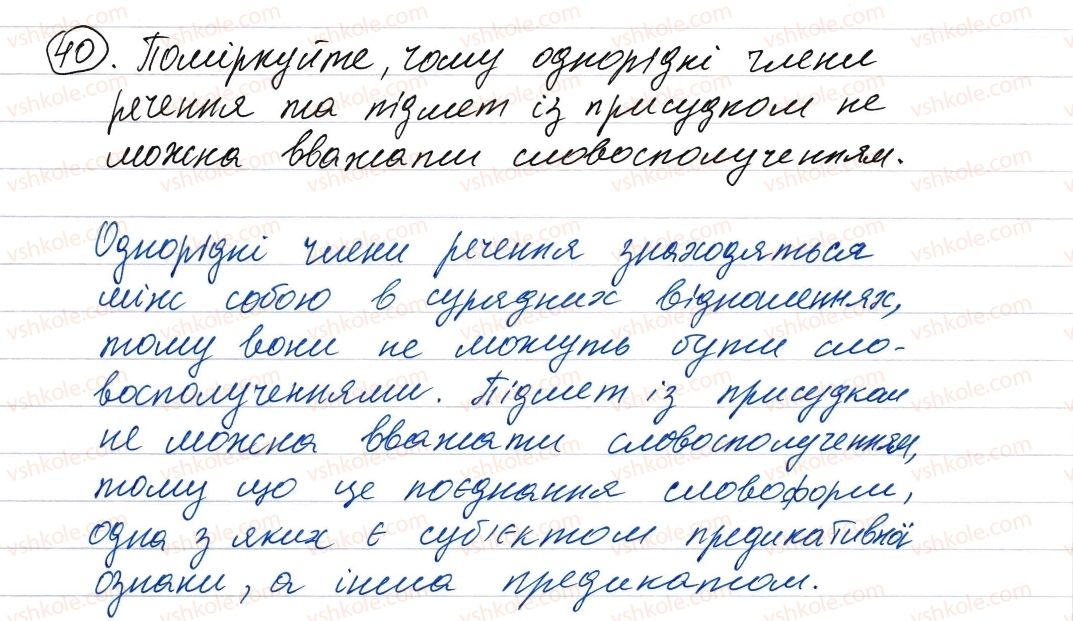 40. Поміркуйте, чому однорідні члени
речення та підмет із присудком не
можна вважати словосполученням.
Однорідні члени речення знаходяться
між собою в сурядних відношеннях,
тому вони не можуть бути сло-
восполученнями. Підмет із присудком
не можна вважати словосполученням,
тому що це поєднання словоформ,
одна з яких є суб'єктом предикативної
ознаки, а інша предикатом.